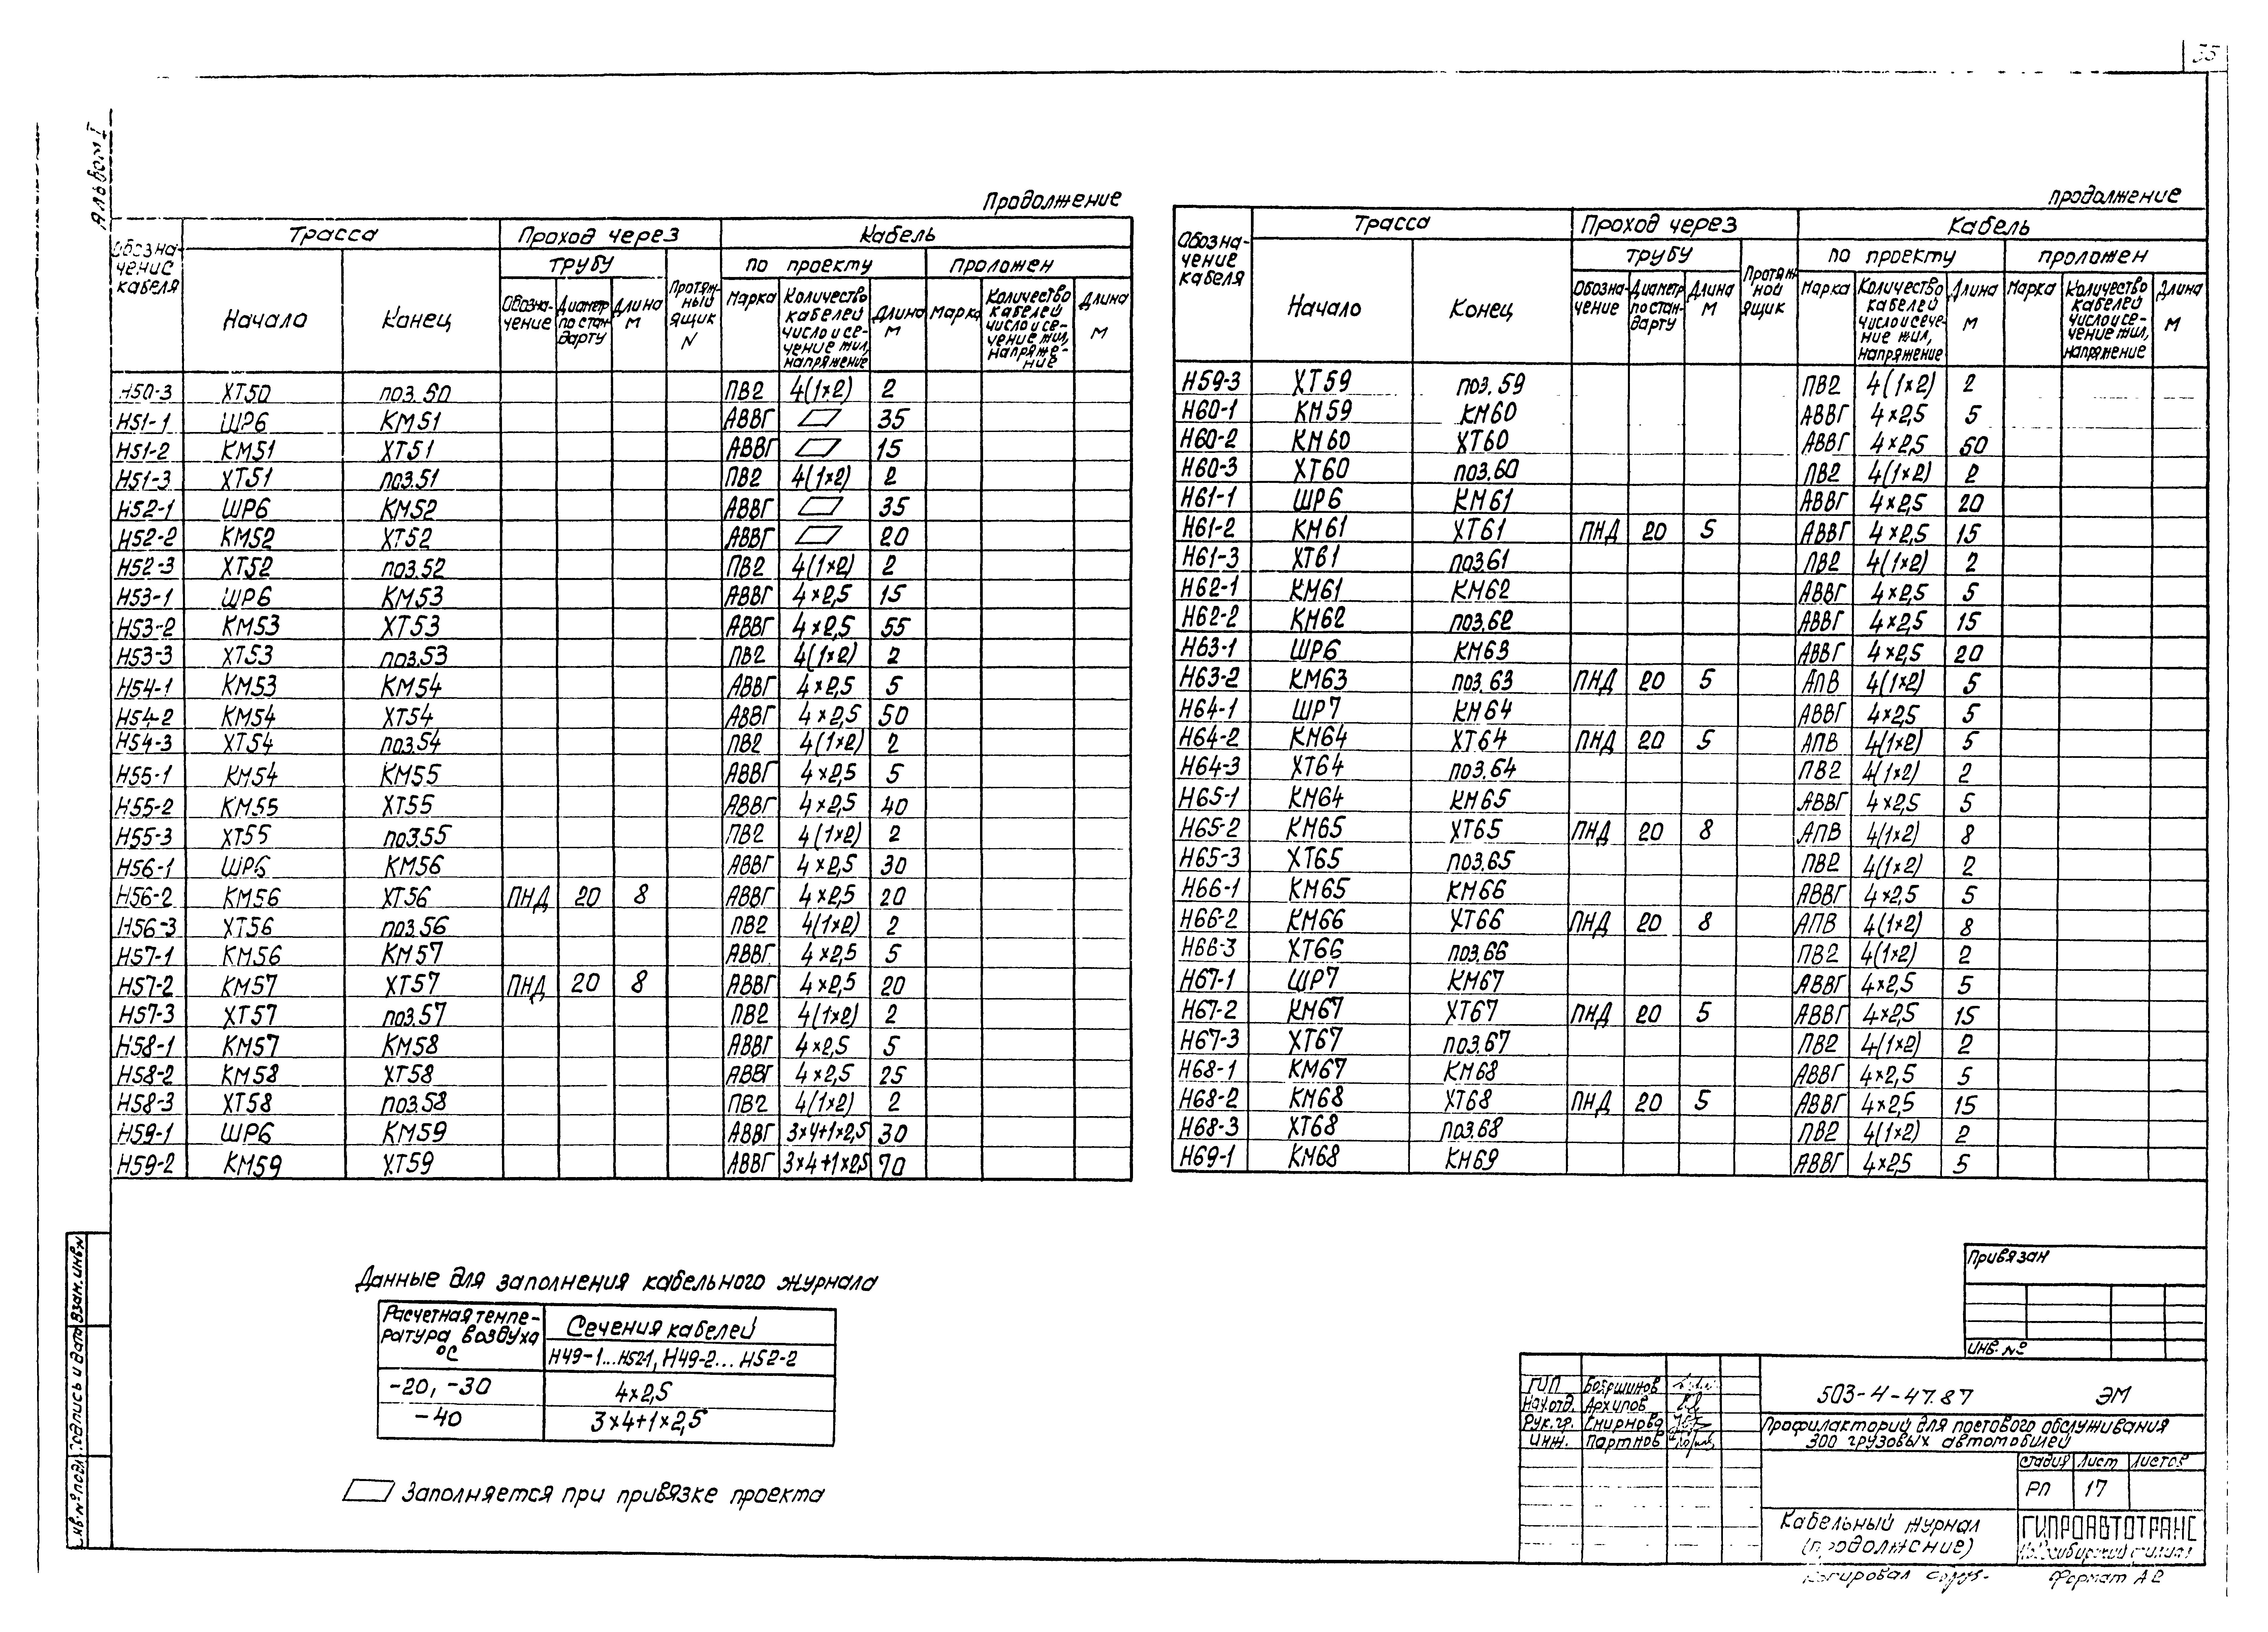 35
Альбом I
Продолжение
Обозначение кабеля | Трасса | Проход через | Кабель
трубу | Протяжный ящик N | по проекту | проложен
Начало | Конец | Обозначение | Диаметр по стандарту | Длина м | Марка | Количество кабелей число и сечение жил, напряжение | Длина м | Марка | Количество кабелей число и сечение жил, напряжение | Длина м
Н50-3 ХТ50 поз.50 ПВ2 4(1×2) 2
Н51-1 ШР6 КМ51 АВВГ ▱ 35
Н51-2 КМ51 ХТ51 АВВГ ▱ 15
Н51-3 ХТ51 поз.51 ПВ2 4(1×2) 2
Н52-1 ШР6 КМ52 АВВГ ▱ 35
Н52-2 КМ52 ХТ52 АВВГ ▱ 20
Н52-3 ХТ52 поз.52 ПВ2 4(1×2) 2
Н53-1 ШР6 КМ53 АВВГ 4×2,5 15
Н53-2 КМ53 ХТ53 АВВГ 4×2,5 55
Н53-3 ХТ53 поз.53 ПВ2 4(1×2) 2
Н54-1 КМ53 КМ54 АВВГ 4×2,5 5
Н54-2 КМ54 ХТ54 АВВГ 4×2,5 50
Н54-3 ХТ54 поз.54 ПВ2 4(1×2) 2
Н55-1 КМ54 КМ55 АВВГ 4×2,5 5
Н55-2 КМ55 ХТ55 АВВГ 4×2,5 40
Н55-3 ХТ55 поз.55 ПВ2 4(1×2) 2
Н56-1 ШР6 КМ56 АВВГ 4×2,5 30
Н56-2 КМ56 ХТ56 ПНД 20 8 АВВГ 4×2,5 20
Н56-3 ХТ56 поз.56 ПВ2 4(1×2) 2
Н57-1 КМ56 КМ57 АВВГ 4×2,5 5
Н57-2 КМ57 ХТ57 ПНД 20 8 АВВГ 4×2,5 20
Н57-3 ХТ57 поз.57 ПВ2 4(1×2) 2
Н58-1 КМ57 КМ58 АВВГ 4×2,5 5
Н58-2 КМ58 ХТ58 АВВГ 4×2,5 25
Н58-3 ХТ58 поз.58 ПВ2 4(1×2) 2
Н59-1 ШР6 КМ59 АВВГ 3×4+1×2,5 30
Н59-2 КМ59 ХТ59 АВВГ 3×4+1×2,5 70
продолжение
Обозначение кабеля | Трасса | Проход через | Кабель
трубу | Протяжной ящик | по проекту | проложен
Начало | Конец | Обозначение | Диаметр по стандарту | Длина М | Марка | Количество кабелей число и сечение жил, напряжение | Длина М | Марка | Количество кабелей число и сечение жил, напряжение | Длина М
Н59-3 ХТ59 поз.59 ПВ2 4(1×2) 2
Н60-1 КМ59 КМ60 АВВГ 4×2,5 5
Н60-2 КМ60 ХТ60 АВВГ 4×2,5 60
Н60-3 ХТ60 поз.60 ПВ2 4(1×2) 2
Н61-1 ШР6 КМ61 АВВГ 4×2,5 20
Н61-2 КМ61 ХТ61 ПНД 20 5 АВВГ 4×2,5 15
Н61-3 ХТ61 поз61 ПВ2 4(1×2) 2
Н62-1 КМ61 КМ62 АВВГ 4×2,5 5
Н62-2 КМ62 поз.62 АВВГ 4×2,5 15
Н63-1 ШР6 КМ63 АВВГ 4×2,5 20
Н63-2 КМ63 поз.63 ПНД 20 5 АПВ 4(1×2) 5
Н64-1 ШР7 КМ64 АВВГ 4×2,5 5
Н64-2 КМ64 ХТ64 ПНД 20 5 АПВ 4(1×2) 5
Н64-3 ХТ64 поз.64 ПВ2 4(1×2) 2
Н65-1 КМ64 КМ65 АВВГ 4×2,5 5
Н65-2 КМ65 ХТ65 ПНД 20 8 АПВ 4(1×2) 8
Н65-3 ХТ65 поз.65 ПВ2 4(1×2) 2
Н66-1 КМ65 КМ66 АВВГ 4×2,5 5
Н66-2 КМ66 ХТ66 ПНД 20 8 АПВ 4(1×2) 8
Н66-3 ХТ66 поз.66 ПВ2 4(1×2) 2
Н67-1 ШР7 КМ67 АВВГ 4×2,5 5
Н67-2 КМ67 ХТ67 ПНД 20 5 АВВГ 4×2,5 15
Н67-3 ХТ67 поз.67 ПВ2 4(1×2) 2
Н68-1 КМ67 КМ68 АВВГ 4×2,5 5
Н68-2 КМ68 ХТ68 ПНД 20 5 АВВГ 4×2,5 15
Н68-3 ХТ68 поз.68 ПВ2 4(1×2) 2
Н69-1 КМ68 КМ69 АВВГ 4×2,5 5
Данные для заполнения кабельного журнала
Расчетная температура воздуха °С | Сечения кабелей
Н49-1...Н52-1, Н49-2...Н52-2
-20, -30 4×2,5
-40 3×4+1×2,5
▱ Заполняется при привязке проекта
Взам.инв.N
Подпись и дата
Инв.№ подл.
Привязан
Инв. №
ГИП Бояршинов
Нач.отд. Архипов
Рук.гр. Смирнова
Инж. Партнов
503-4-47.87 ЭМ
Профилакторий для постового обслуживания
300 грузовых автомобилей
Стадия Лист Листов
РП 17
Кабельный журнал
(продолжение)
ГИПРОАВТОТРАНС
Новосибирский филиал
Копировал
Формат А2